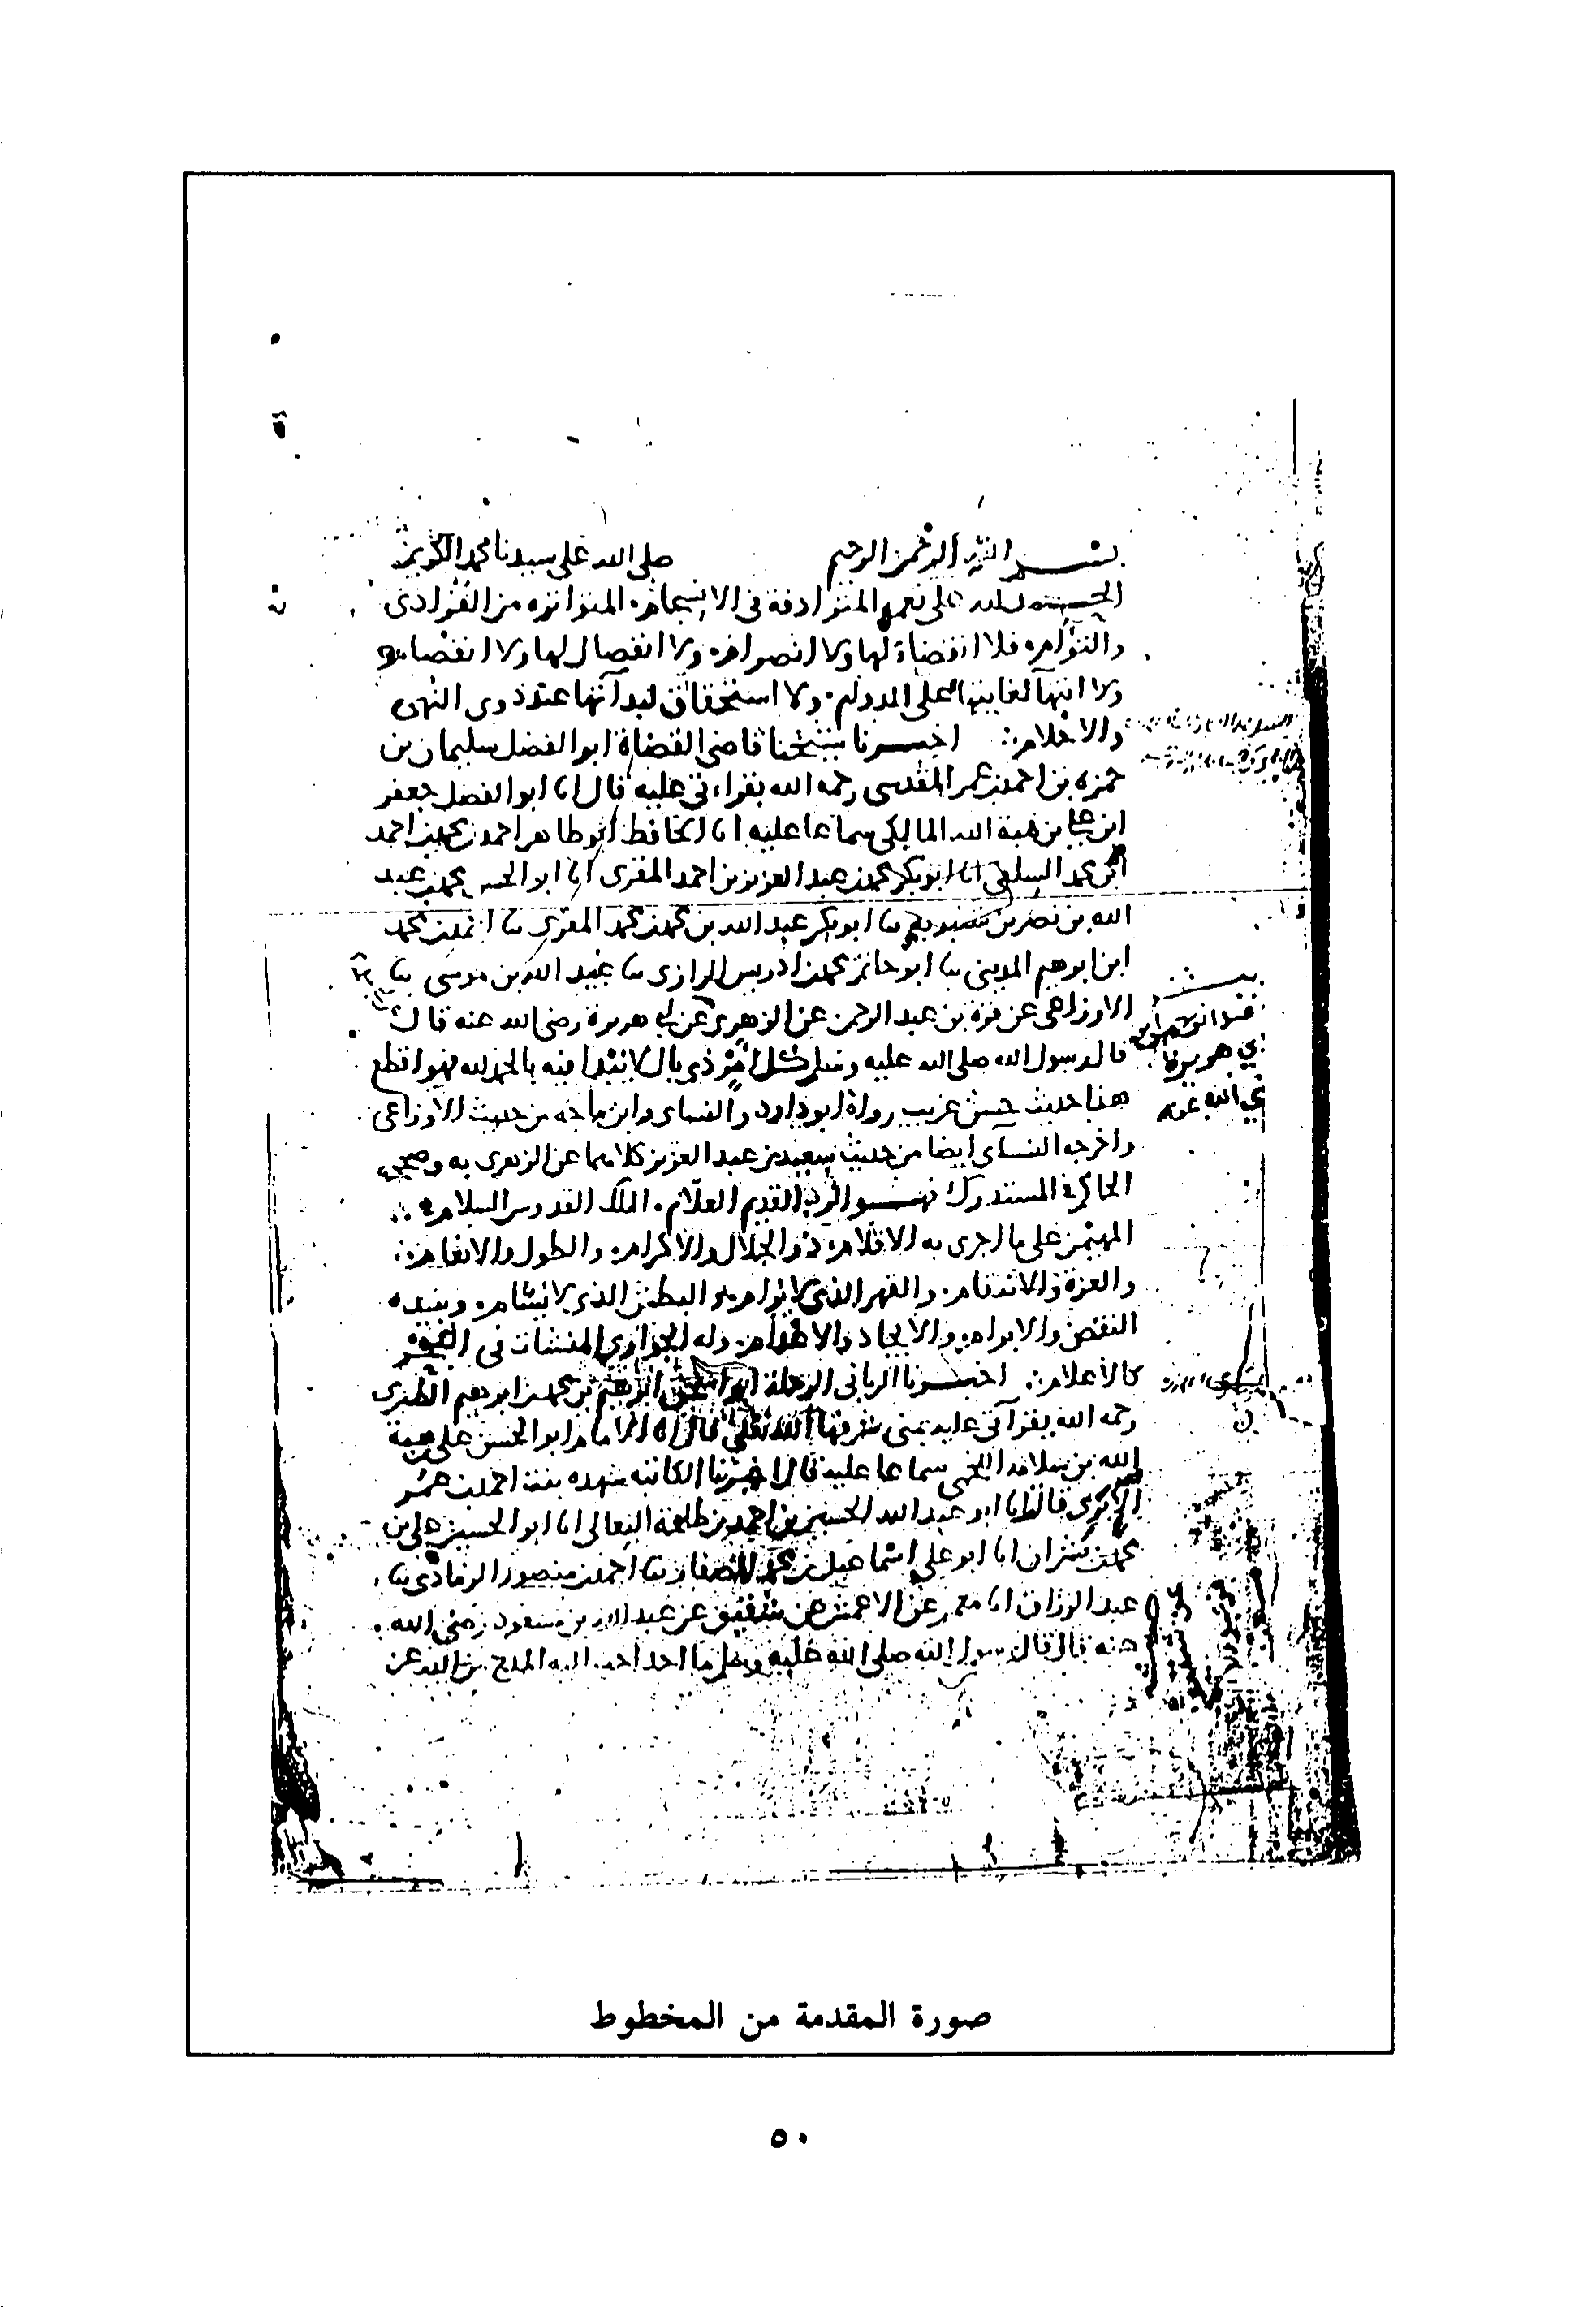 بسم الله الرحمن الرحيم صلى الله على سيدنا محمد الكريم
الحمد لله على نعمه المترادفة في الانسجام، المتواترة من الفرادى
والتوام، فلا انقضاء لها ولا انصرام، ولا انفصال لها ولا انفصام
ولا انتهآ لغايتها على الدوام، ولا استحقاق لبدآتها عند ذوى النهى
والاحلام. اخبرنا شيخنا قاضى القضاة ابو الفضل سليمان بن
حمزه بن احمد بن عمر المقدسى رحمه الله بقراءتى عليه قال انا ابو الفضل جعفر
ابن على بن هبة الله المالكى سماعا عليه انا الحافظ ابو طاهر احمد بن محمد بن احمد
ابن محمد السلفى انا ابو بكر محمد بن عبد العزيز بن احمد المقرى انا ابو الحسن محمد بن عبد
الله بن نصر بن ثنا ابو بكر عبد الله بن محمد بن محمد المقرى ثنا احمد بن محمد
ابن ابرهيم المدينى ثنا ابو حاتم محمد بن ادريس الرازى ثنا عبيد الله بن موسى ثنا
الاوزاعى عن قرة بن عبد الرحمن عن الزهرى عن ابى هريرة رضى الله عنه قال
قال رسول الله صلى الله عليه وسلم كل امر ذى بال لا يبدا فيه بالحمد لله فهو اقطع
هذا حديث حسن غريب رواه ابو داود والنساى وابن ماجه من حديث الاوزاعى
واخرجه النساى ايضا من حديث سعيد بن عبد العزيز كلاهما عن الزهرى به وصححه
الحاكم في المستدرك فهو الرب القديم العلام، الملك القدوس السلام
المهيمن على ما لجرى به الاقلام، ذو الجلال والاكرام، والطول والانعام
والعزة والانتقام، والقهر الذى لا يرام، والبطش الذى لا يشام، وبيده
النقض والابرام، والايجاد والاعدام، وله الجوارى المنشات فى البحر
كالاعلام. اخبرنا الربانى الرحلة ابو اسحق ابرهيم بن محمد بن ابرهيم الطبرى
رحمه الله بقرآتى عليه بمنى شرفها الله تعالى قال انا الامام ابو الحسن على بن هبة
الله بن سلامه اللخمى سماعا عليه قال اخبرتنا الكاتبه شهده بنت احمد بن عمر
الابرى قالت انا ابو عبد الله الحسين بن احمد بن طلحة النعالى انا ابو الحسين على بن
محمد بن بشران انا ابو على اسماعيل بن محمد الصفار ثنا احمد بن منصور الرمادى ثنا
عبد الرزاق انا معمر عن الاعمش عن شقيق عن عبد الله بن مسعود رضى الله
عنه قال قال رسول الله صلى الله عليه وسلم ما احد احب اليه المدح من الله عز
ابي هريرة
رضي الله عنه
صورة المقدمة من المخطوط
٥٠